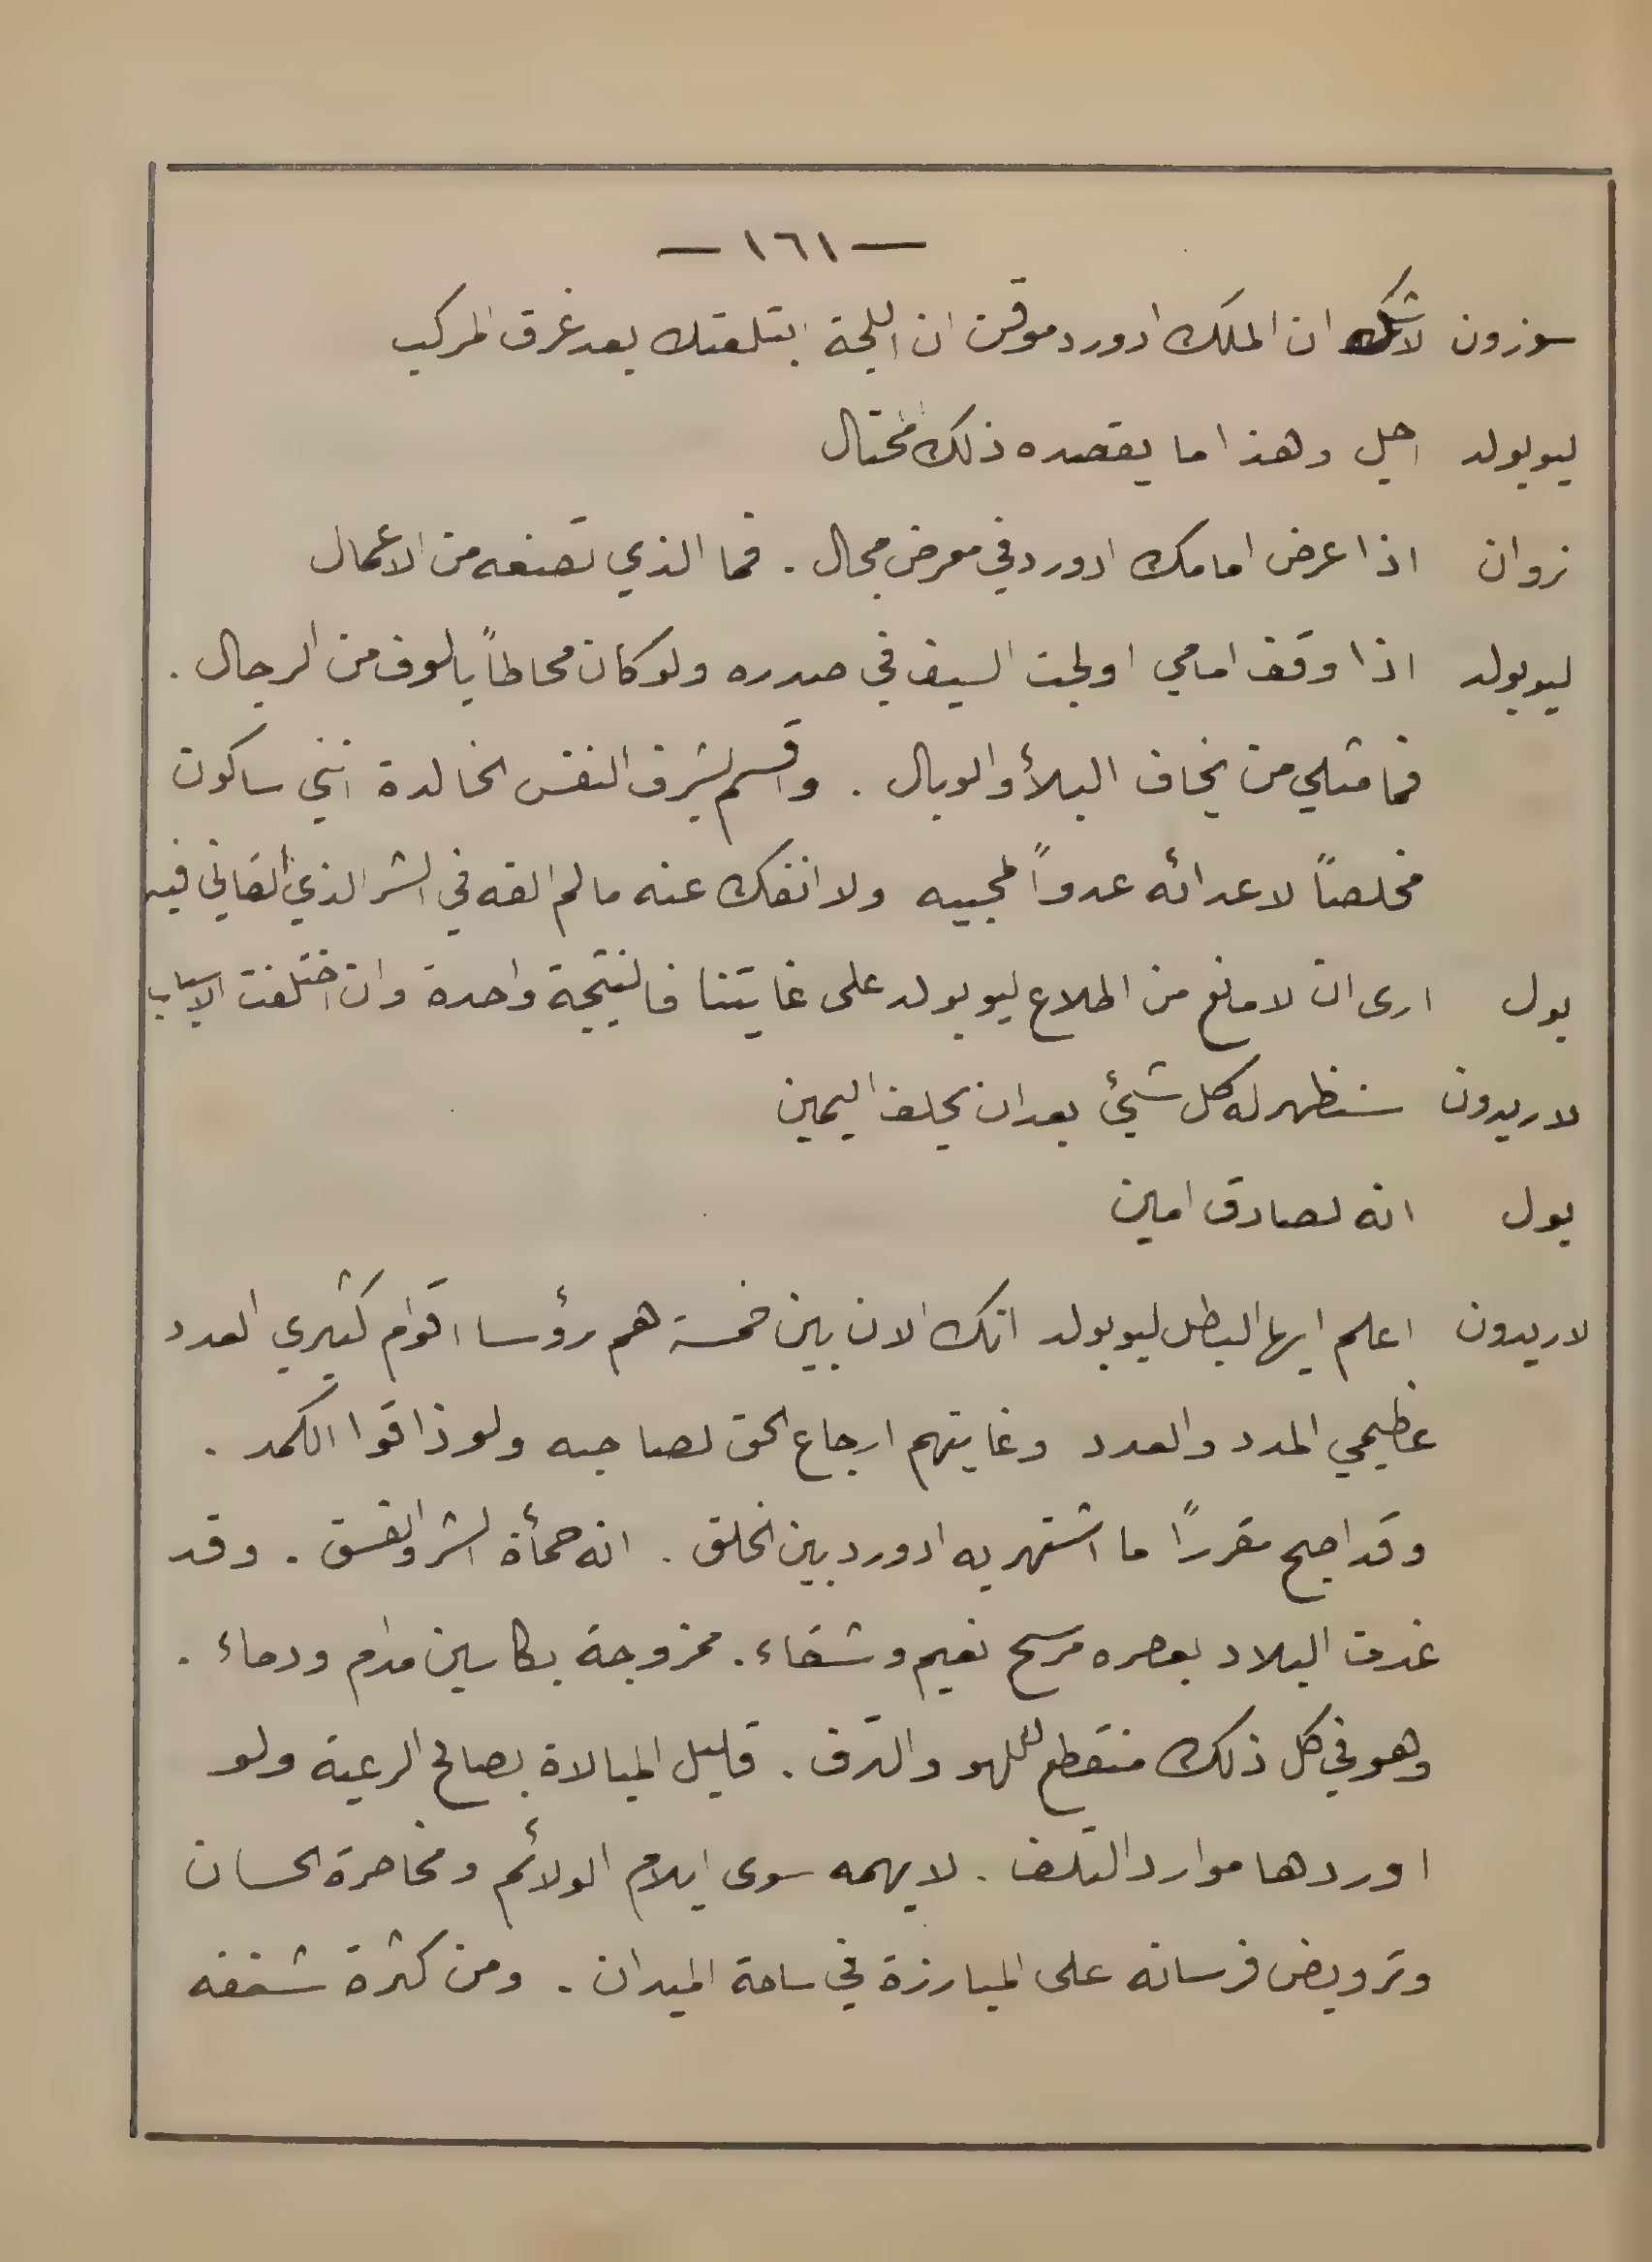 — ١٦١ —
سوزون لاشك ان الملك ادورد موقن ان اللجة ابتلعتك بعد غرق المركب
ليوبولد اجل وهذا ما يقصده ذلك المحتال
نروان اذا عرض امامك ادورد في معرض مجال . فما الذي تصنعه من الاعمال
ليوبولد اذا وقف امامي اولجت السيف في صدره ولو كان محاطاً بالوف من الرجال .
فما مثلي من يخاف البلأ والوبال . واقسم بشرف النفس الخالدة انني ساكون
مخلصاً لاعدائه عدواً لمحبيه ولا انفك عنه ما لم القه في الشر الذي القاني فيه
بول ارى ان لا مانع من اطلاع ليوبولد على غايتنا فالنتيجة واحدة وان اختلفت الاسباب
لاريدون سنظهر له كل شيئ بعد ان يحلف اليمين
بول انه لصادق امين
لاريدون اعلم ايها البطل ليوبولد انك الان بين خمسة هم رؤسا اقوام كثيري العدد
عظيمي المدد والعدد وغايتهم ارجاع الحق لصاحبه ولو ذاقوا الكمد .
وقد اصبح مقررًا ما اشتهر به ادورد بين الخلق . انه حمأة الشر والفسق . وقد
غدت البلاد بعصره مرسح نعيم وشقاء . ممزوجة بكاسين مدام ودماء .
وهو في كل ذلك منقطع للهو والترف . قليل المبالاة بصالح الرعية ولو
اوردها موارد التلف . لا يهمه سوى ايلام الولائم ومخاصرة الحسان
وترويض فرسانه على المبارزة في ساحة الميدان . ومن كثرة شغفه